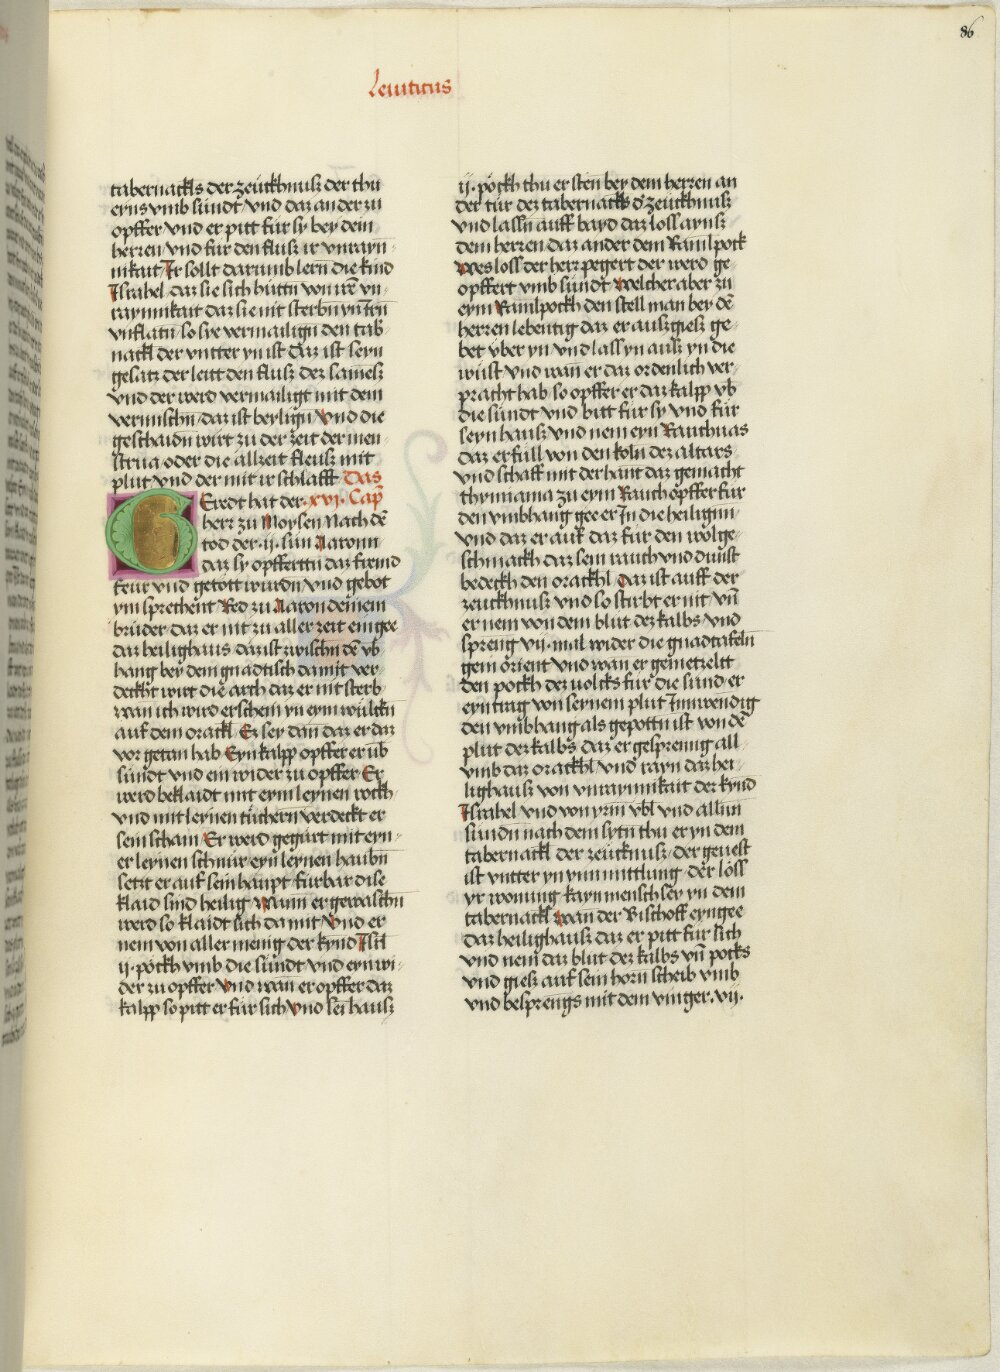 86
Leuiticus
tabernackls der zeuckhnusz der thu
eyns vmb sundt vnd daz ander zu
opffer vnd er pitt fur sy bey dem
herzen vnd fur den flusz ir vnrayn
nikait Ir sollt darumb lern die kind
Israhel daz sie sich huttn von irẽ vn
raynnikait daz sie nit sterbn yn irn
vnflatn so sye vermailign den tab
nackl der vntter yn ist Daz ist seyn
gesatz der leitt den flusz dez samesz
vnd der werd vermailigt mit dem
vermischn daz ist beylign vnd die
geschaidn wirt zu der zeit der men
strua oder die allzeit fleusz mit
plut vnd der mit ir schlafft Das
Eredt hat der .xvi. Cap
herz zu Moysen Nach dẽ
tod der .ij. sun Aaronn
daz sy opffertn daz fremd
feur vnd getött wurdn vnd gebot
ym sprechent Red zu Aaron deinem
bruder daz er nit zu aller zeit eingee
daz heilighaus daz ist zwischn dẽ vb
hang bey dem gnadtisch damit ver
deckht wirt die arch daz er nit sterb
wan ich wird erschein yn eym wulckn
auf dem orackl Ez sey dan daz er daz
vor getan hab Eyn kalpp opffer er vb
sundt vnd ein wider zu opffer Er
werd beklaidt mit eym leynen rockh
vnd mit leynen tüchern verdeckt er
sein scham Er werd gegurt mit eyn
er leynen schnur eyn leynen haubn
setzt er auf sein haupt furbar dise
klaid sind heilig Wann er gewaschn
werd so klaidt sich da mit vnd er
nem von aller menig der kynd Isrl
ij. pöckh vmb die sundt vnd eyn wi
der zu opffer vnd wan er opffer daz
kalpp so pitt er fur sich vnd sei hausz
ij. pöckh thu er sten bey dem herzen an
der tür dez tabernackls d' zeuckhnusz
vnd lassn auff bayd daz loss ayns
dem herzen daz ander dem Ramlpock
Wes loss der herz pegert der werd ge
opffert vmb sundt Welcher aber zu
eym Ramlpockh den stell man bey dẽ
herzen lebentig daz er auszgiesz ge
bet vber yn vnd lass yn ausz yn die
wüst vnd wan er daz ordenlich ver
pracht hab so opffer er daz kalpp vb
die sundt vnd bitt fur sy vnd fur
seyn hausz vnd nem eyn Rauchuas
daz er full von den koln dez altars
vnd schaff mit der hant daz gemacht
thymiama zu eym Rauch opffer fur
den vmbhang gee er In die heilignn
vnd daz er auf daz für den wolge
schmackh daz sein rauch vnd dunst
bedeckh den orackhl Daz ist auff der
zeuckhnusz vnd so stirbt er nit vñ
er nem von dem blut dez kalbs vnd
spreng vij. mal wider die gnadtafeln
gein orient vnd wan er gemetzeltt
den pockh dez uolcks fur die sund er
eyn trag von seynem plut Innwendig
den vmbhang als gepottn ist von dẽ
plut dez kalbs daz er gesprenng all
vmb daz orackhl vnd rayn daz hei
lighausz von vnraynnikait der kynd
Israhel vnd von yrm vbl vnd allnn
sundn nach dem sytn thu er yn dem
tabernackl der zeucknusz der geuest
ist vntter yn ynn mittlung der löss
yr wonung kayn mensch sey yn dem
tabernackl wan der Bischoff eyngee
daz heilighausz daz er pitt fur sich
vnd nem daz blut dez kalbs vñ pocks
vnd giesz auf sein horn scheib vmb
vnd besprengs mit dem vinger .vij.